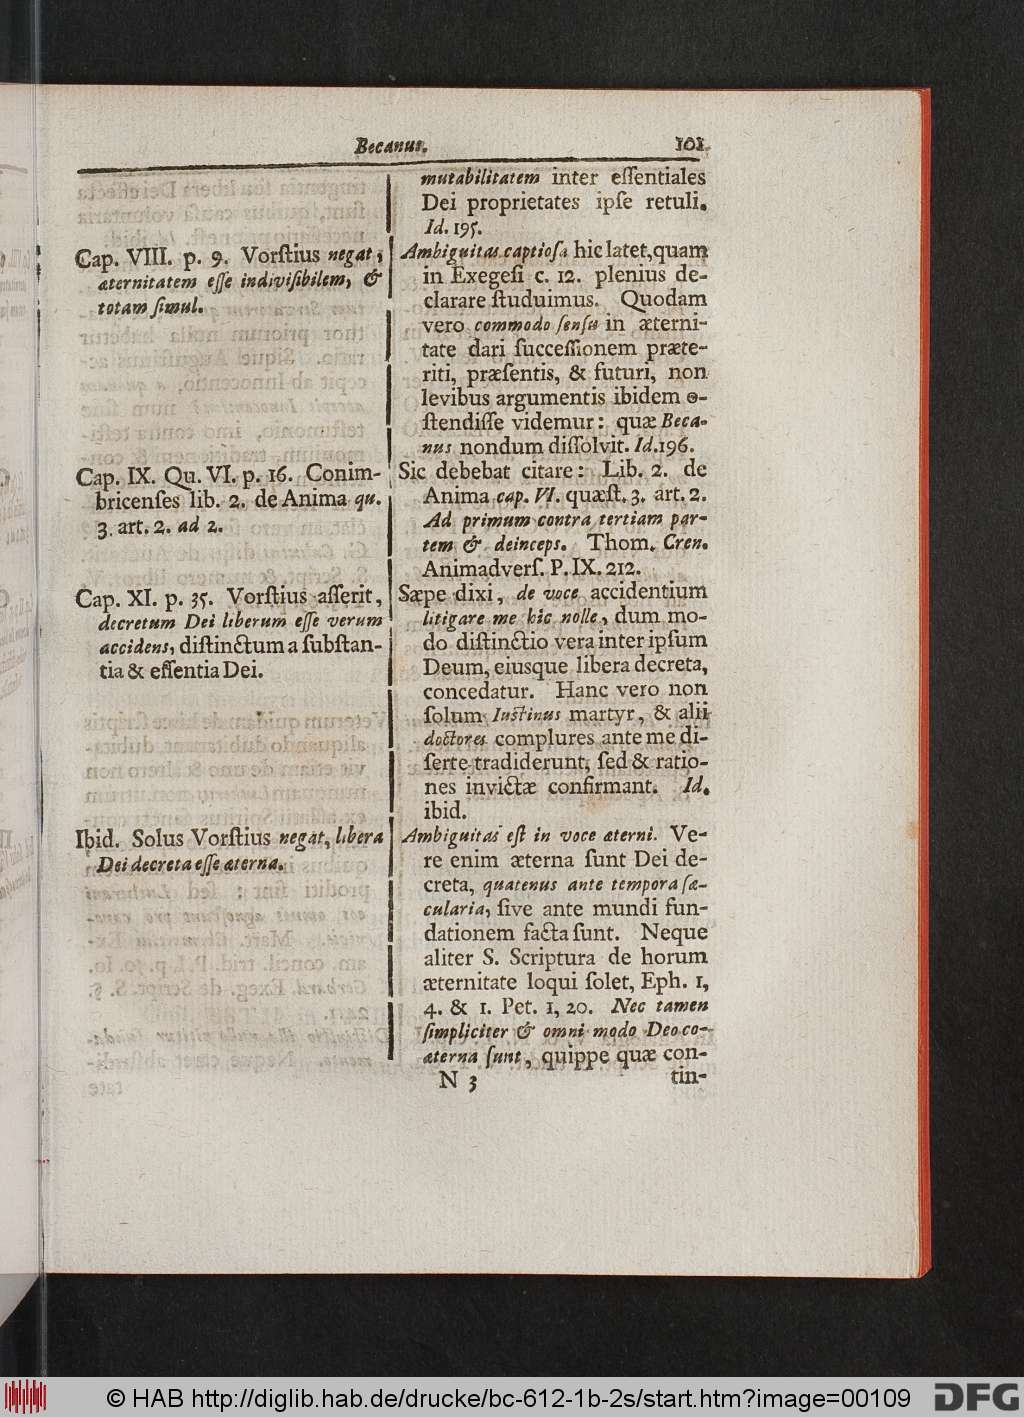 Becanus. 101
mutabilitatem inter eſſentiales
Dei proprietates ipſe retuli.
Id. 195.
Cap. VIII. p. 9. Vorſtius negat,
æternitatem eſſe indiviſibilem, &
totam ſimul.
Ambiguitas captioſa hic latet, quam
in Exegeſi c. 12. plenius de-
clarare ſtuduimus. Quodam
vero commodo ſenſu in æterni-
tate dari ſucceſſionem præte-
riti, præſentis, & futuri, non
levibus argumentis ibidem o-
ſtendiſſe videmur: quæ Beca-
nus nondum diſſolvit. Id. 196.
Cap. IX. Qu. VI. p. 16. Conim-
bricenſes lib. 2. de Anima qu.
3. art. 2. ad 2.
Sic debebat citare: Lib. 2. de
Anima cap. VI. quæſt. 3. art. 2.
Ad primum contra tertiam par-
tem & deinceps. Thom. Cren.
Animadverſ. P. IX. 212.
Cap. XI. p. 35. Vorſtius aſſerit,
decretum Dei liberum eſſe verum
accidens, diſtinctum a ſubſtan-
tia & eſſentia Dei.
Sæpe dixi, de voce accidentium
litigare me hic nolle, dum mo-
do diſtinctio vera inter ipſum
Deum, eiusque libera decreta,
concedatur. Hanc vero non
ſolum Iuſtinus martyr, & alii
doctores complures ante me di-
ſerte tradiderunt, ſed & ratio-
nes invictæ confirmant. Id.
ibid.
Ibid. Solus Vorſtius negat, libera
Dei decreta eſſe æterna.
Ambiguitas eſt in voce æterni. Ve-
re enim æterna ſunt Dei de-
creta, quatenus ante tempora ſæ-
cularia, ſive ante mundi fun-
dationem facta ſunt. Neque
aliter S. Scriptura de horum
æternitate loqui ſolet, Eph. 1,
4. & 1. Pet. 1, 20. Nec tamen
ſimpliciter & omni modo Deo co-
æterna ſunt, quippe quæ con-
N 3 tin-
© HAB http://diglib.hab.de/drucke/bc-612-1b-2s/start.htm?image=00109 DFG